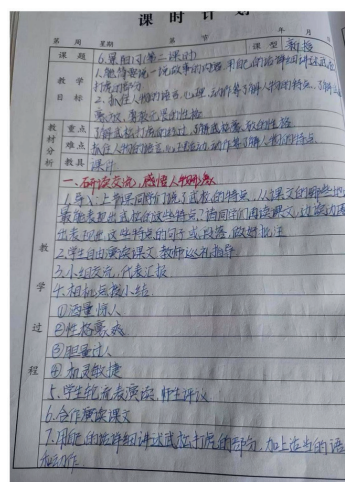 课 时 计 划
年 月
第 周 星期 第 节 课 型 新授
课 题 6.景阳冈(第二课时)
教 学 目 标
1.能简要说一说故事的内容,用自己的话详细讲述武松
打虎的部分
2.抓住人物的语言、心理、动作等了解人物的特点,了解
豪放、勇敢 的性格
教材分析 重点 了解武松打虎的经过,了解武松 的性格
难点 抓住人物的语言、心理 动作等了解人物的特点
教具 课件
教 学 过 程
一、研读交流,感悟人物形象
1.导入:上节课同学们说了武松的特点,从课文的哪些地方
最能表现出武松的这些特点?请同学们再读课文,边读边画
出表现出这些特点的句子或段落,做好批注
2.学生自由演读课文 教师巡视指导
3.小组交流,代表汇报
4.相机 小结:
①酒量惊人
②性格豪放
③胆量过人
④机灵敏捷
5.学生轮流表演读,师生评议
6.合作演读课文
7.用自己的话详细讲述武松打虎的部分,加上适当的语
和动作.